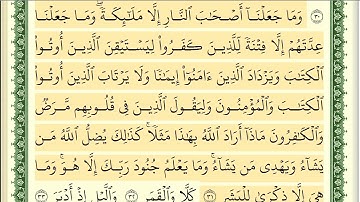 ٣٠ وَمَا جَعَلْنَآ أَصْحَٰبَ ٱلنَّارِ إِلَّا مَلَٰٓئِكَةً ۙ وَمَا جَعَلْنَا
عِدَّتَهُمْ إِلَّا فِتْنَةً لِّلَّذِينَ كَفَرُوا۟ لِيَسْتَيْقِنَ ٱلَّذِينَ أُوتُوا۟
ٱلْكِتَٰبَ وَيَزْدَادَ ٱلَّذِينَ ءَامَنُوٓا۟ إِيمَٰنًا ۙ وَلَا يَرْتَابَ ٱلَّذِينَ أُوتُوا۟
ٱلْكِتَٰبَ وَٱلْمُؤْمِنُونَ ۙ وَلِيَقُولَ ٱلَّذِينَ فِى قُلُوبِهِم مَّرَضٌ
وَٱلْكَٰفِرُونَ مَاذَآ أَرَادَ ٱللَّهُ بِهَٰذَا مَثَلًا ۚ كَذَٰلِكَ يُضِلُّ ٱللَّهُ مَن
يَشَآءُ وَيَهْدِى مَن يَشَآءُ ۚ وَمَا يَعْلَمُ جُنُودَ رَبِّكَ إِلَّا هُوَ ۚ وَمَا
هِىَ إِلَّا ذِكْرَىٰ لِلْبَشَرِ ٣١ كَلَّا وَٱلْقَمَرِ ٣٢ وَٱلَّيْلِ إِذْ أَدْبَرَ ٣٣